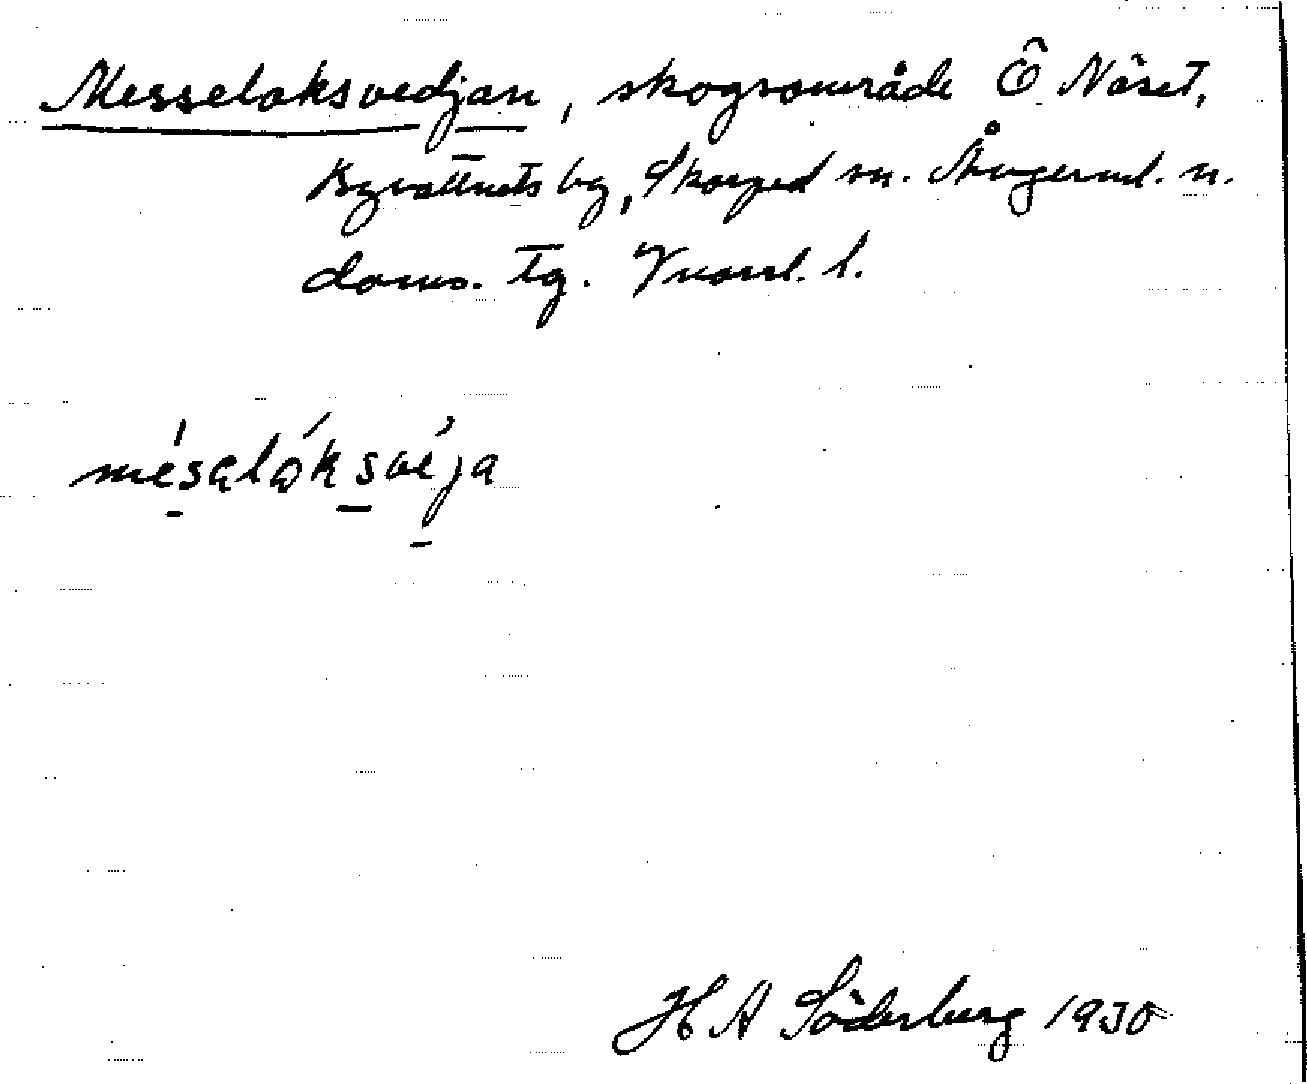 Messelaksvedjan, skogsområde Ö Näset,
Kyvattnets by, Skorped sn. Ångerml. n.
doms. tg. Vnorrl. l.
mesalåksveja
H A Söderberg 1930